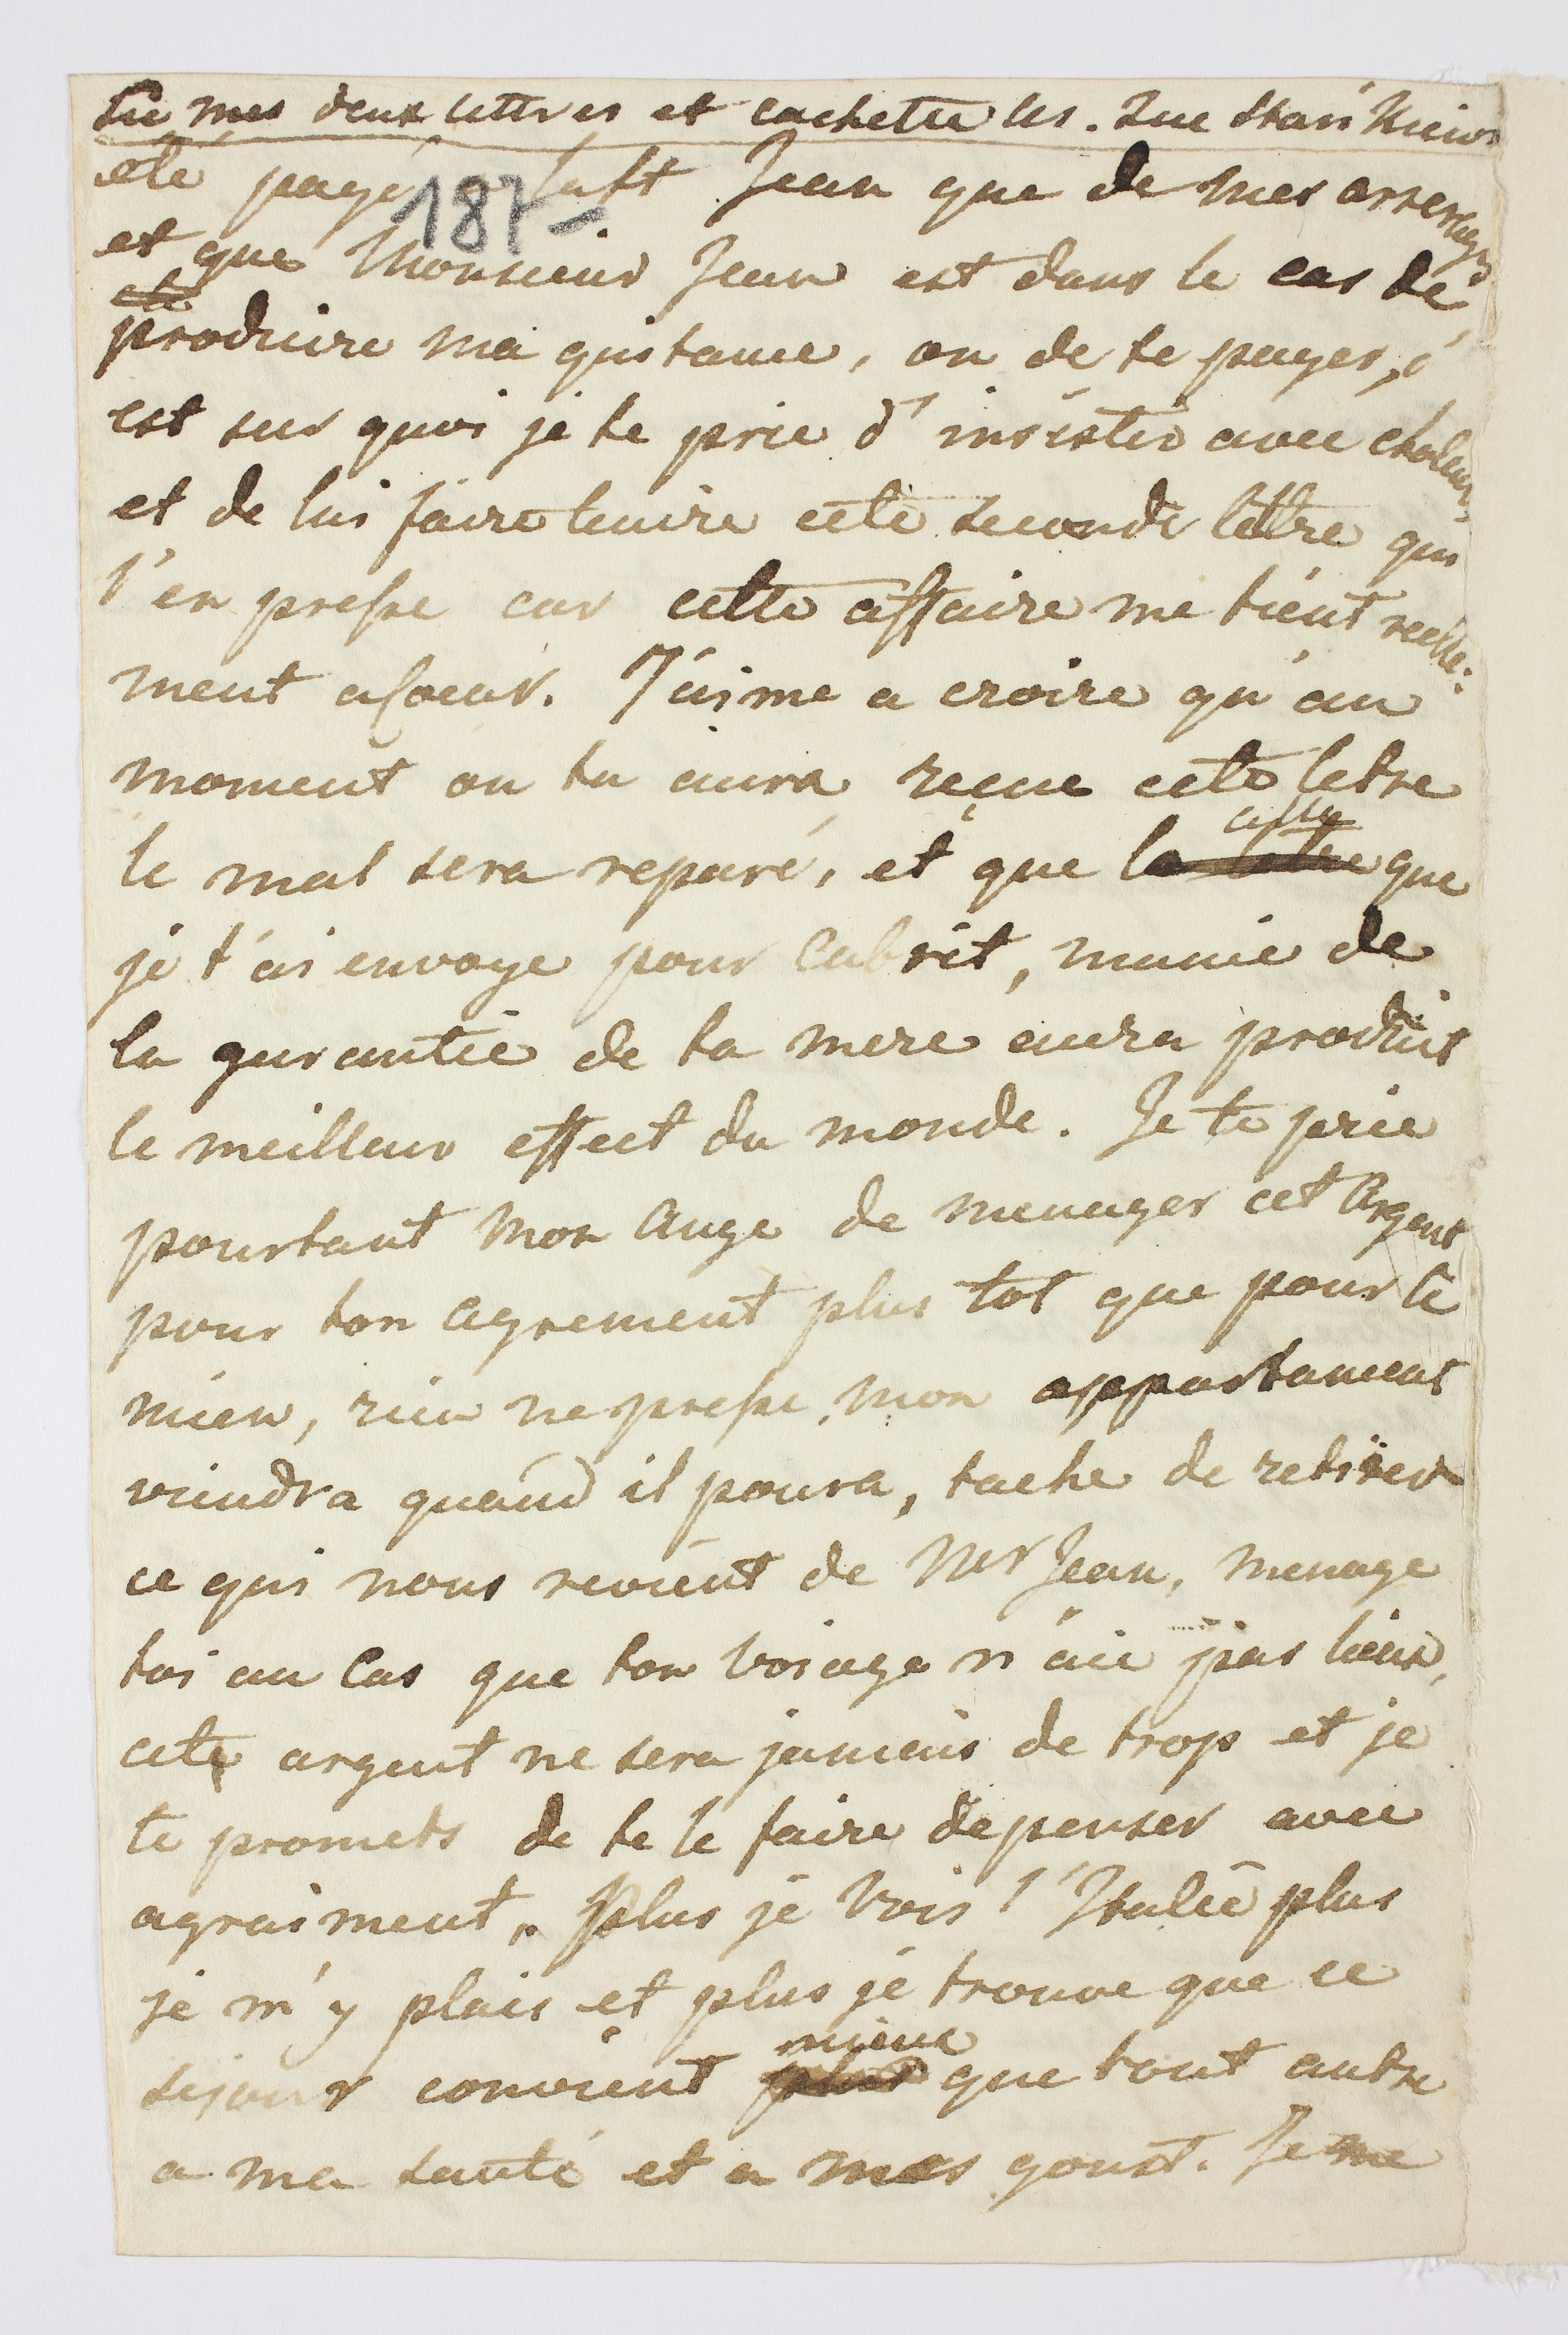 Lie mes deux lettres et cachette les.
été payé Jean que de mes arrerages
187-
et que Monsieur Jean est dans le cas de
produire ma quitance, ou de te payer, c'
est sur quoi je te prie d'insister avec chaleur,
et de lui faire tenire cete seconde lettre qui
l'en presse car cette affaire me tient reelle:
ment a coeur. J'aime a croire qu'au
moment ou tu aura reçue cete letre
le mal sera reparé, et que la letre celle que
je t'ai envoye pour Cabrit, munie de
la garantie de ta mere aura produit
le meilleur effect du monde. Je te prie
pourtant mon Ange de menager cet Argent
pour ton agrement plus tot que pour le
mien, rien ne presse, mon appartament
viendra quand il poura, tache de retirer
ce qui nous revient de Mr Jean, menage
toi au Cas que ton voiage n'aie pas lieux,
cete argent ne sera jamais de trop et je
te promets de te le faire depenser avec
agraiment. Plus je vois l'Italie plus
je m'y plais et plus je trouve que ce
sejour convient plus mieux que tout autre
a ma santé et a mes goust. Je me